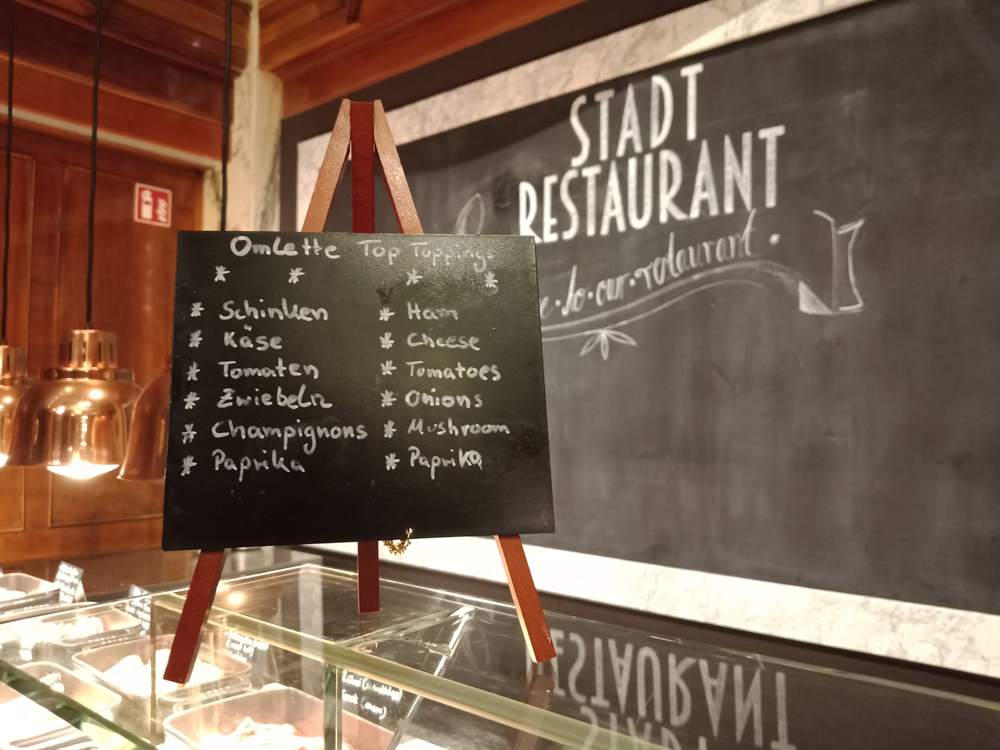 STADT
RESTAURANT
to our restaurant.
Omlette Top Toppings
* * * *
* Schinken
* Käse
* Tomaten
* Zwiebeln
* Champignons
* Paprika
* Ham
* Cheese
* Tomatoes
* Onions
* Mushroom
* Paprika